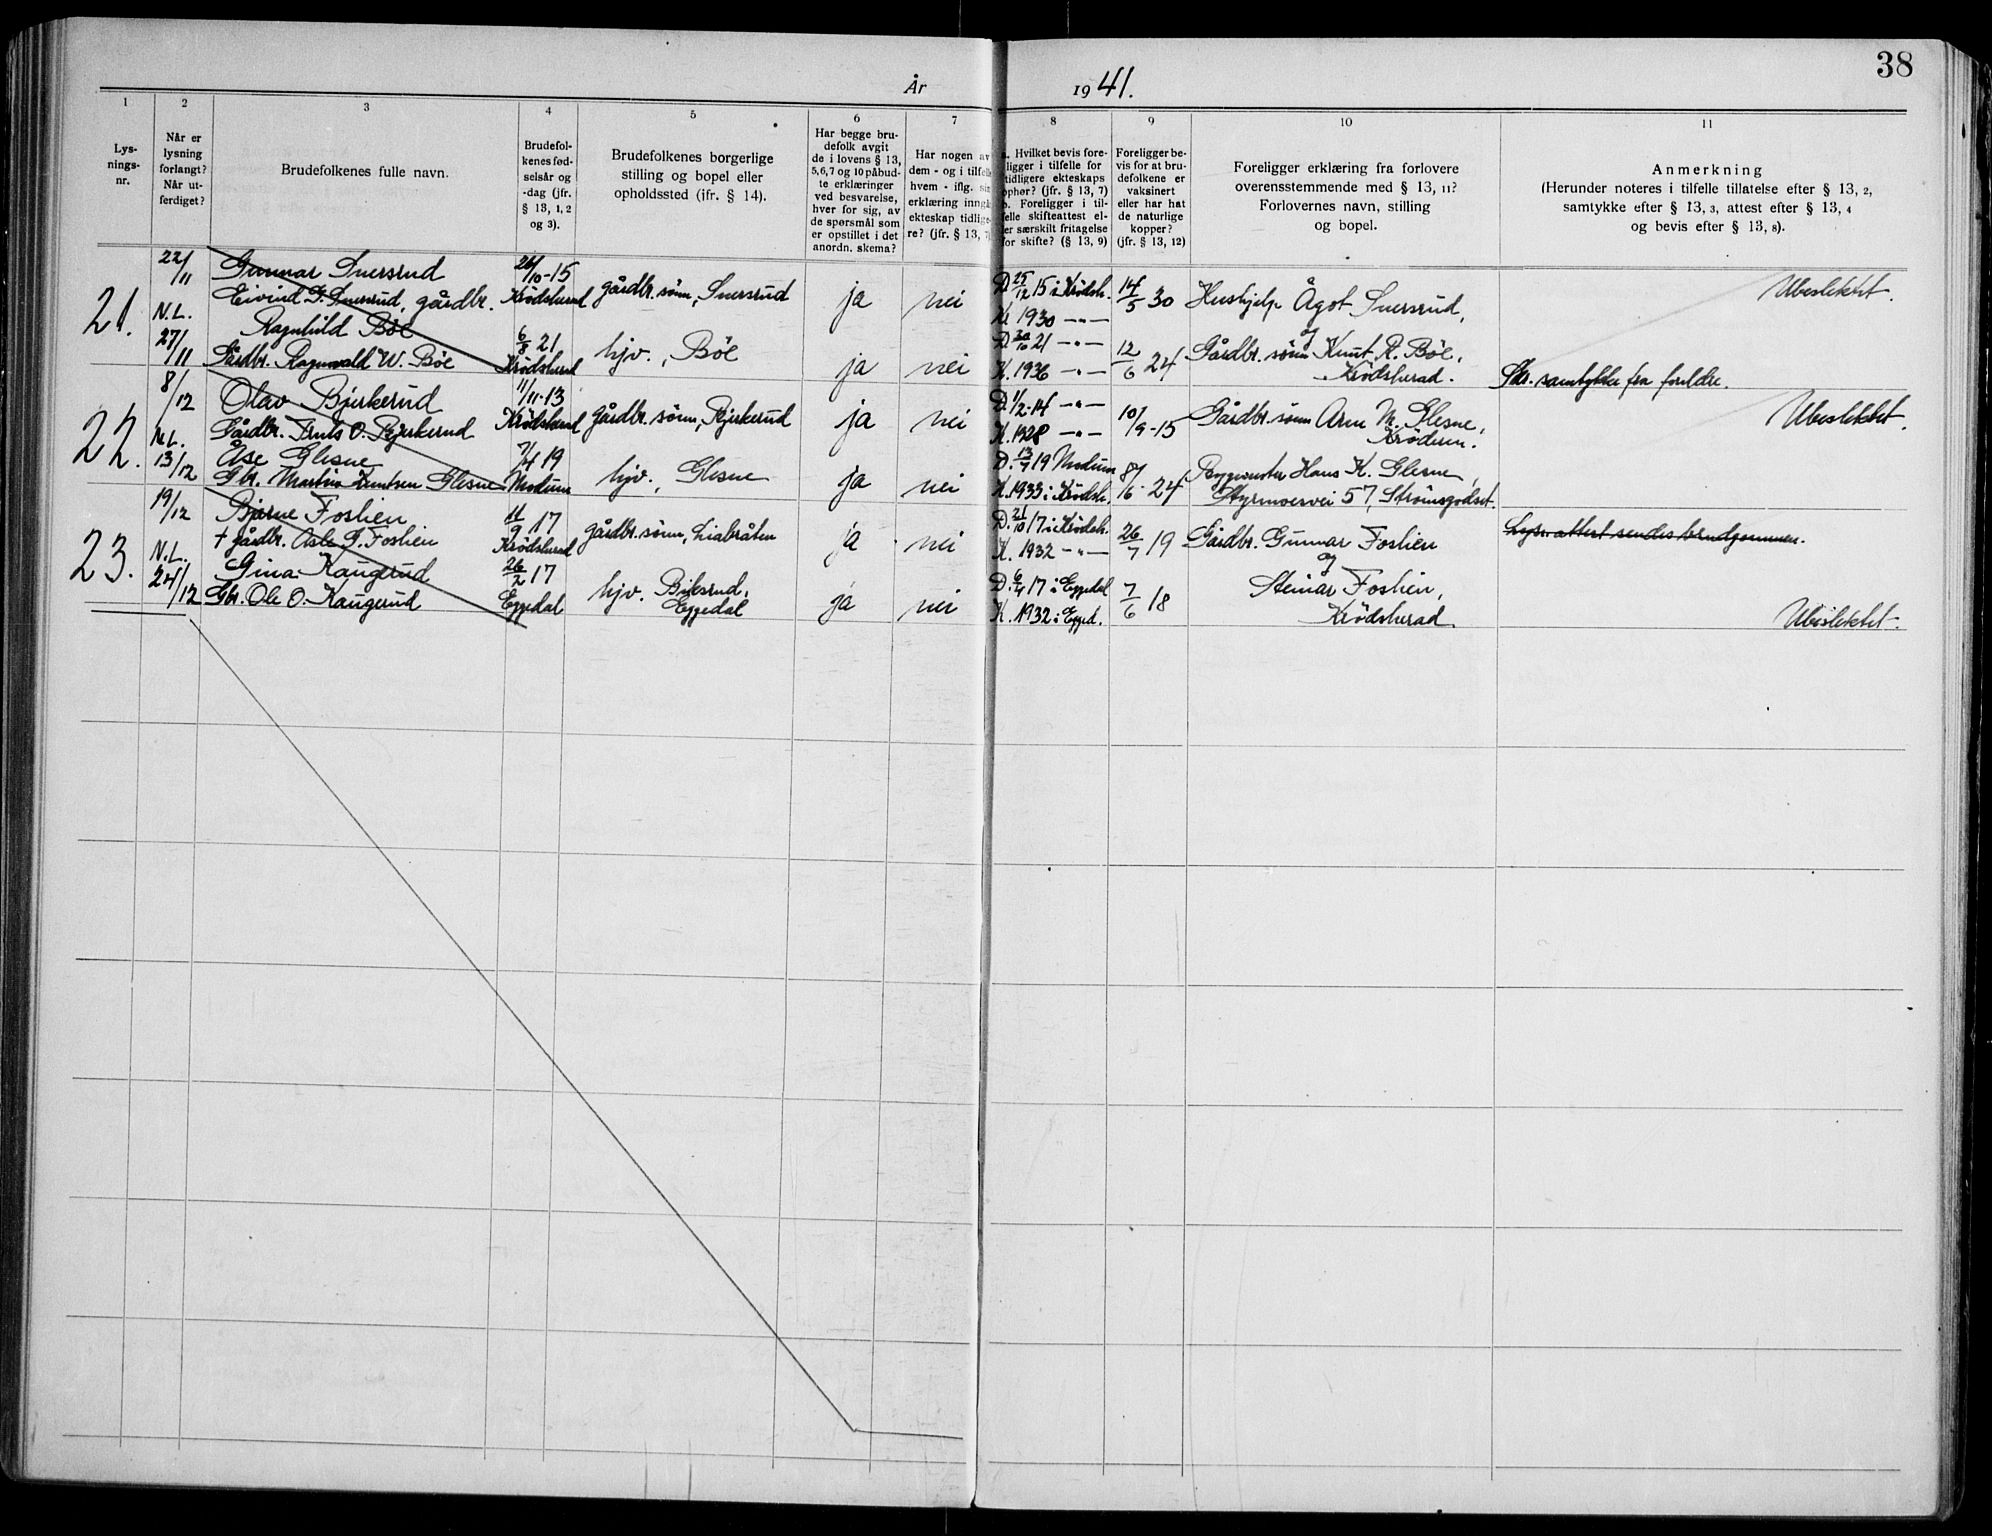 38
År 1941.
1 2 3 4 5 6 7 8 9 10 11
Lys-
nings-
nr.
Når er
lysning
forlangt?
Når ut-
ferdiget?
Brudefolkenes fulle navn.
Brudefol-
kenes fød-
selsår og
-dag (jfr.
§ 13, 1, 2
og 3).
Brudefolkenes borgerlige
stilling og bopel eller
opholdssted (ifr. § 14).
Har begge bru-
defolk avgit
de i lovens § 13,
5,6,7 og 10 påbud-
te erklæringer
ved besvarelse,
hver for sig, av
de spørsmål som
er opstillet i det
anordn. skema?
Har nogen av
dem - og i tilfelle
hvem - iflg. sin
erklæring inngå
ekteskap tidlige-
re? (jfr. § 13, 7
a. Hvilket bevis fore-
ligger i tilfelle for
tidligere ekteskaps
ophør? (jfr. § 13, 7)
b. Foreligger i til-
felle skifteattest el-
ler særskilt fritagelse
for skifte? (§ 13, 9)
Foreligger be-
vis for at bru-
defolkene er
vaksinert
eller har hat
de naturlige
kopper?
(jfr. § 13, 12)
Foreligger erklæring fra forlovere
overensstemmende med § 13, 11?
Forlovernes navn, stilling
og bopel.
Anmerkning
(Herunder noteres i tilfelle tillatelse efter § 13, 2,
samtykke efter § 13, 3, attest efter § 13, 4
og bevis efter § 13, 8).
21.
22/11
N.L.
27/11
Gunnar Snersrud
Eivind G. Snersrud, gårdbr.
Ragnhild Bøe
Gårdbr. Ragnvald W. Bøe
26/10-15
Krødsherad
6/8 21
Krødsherad
gårdbr. sønn, Snersrud
hjv., Bøe
ja nei
ja nei
D. 25/12 15 i Krødsh.
K. 1930 -"-
D. 30/10 21 -"-
K. 1936 -"-
14/5 30
12/6 24
Hushjelp Ågot Snersrud,
og
Gårdbr. sønn Knut R. Bøe,
Krødsherad.
Ubeslektet.
Skr. samtykke fra foreldre.
22.
8/12
N.L.
13/12
Olav Bjerkerud
Gårdbr. Truls O. Bjerkerud
Åse Glesne
Gbr. Martin Knutsen Glesne
11/11-13
Krødsherad
7/4 19
Modum
gårdbr. sønn, Bjerkerud
hjv., Glesne
ja nei
ja nei
D. 1/2-14 -"-
K. 1928 -"-
D. 13/7 19 Modum
K. 1933 i Krødsh.
10/9-15
8/16-24
Gårdbr. sønn Arne M. Glesne,
Krøderen.
Byggmester Hans K. Glesne,
Styrmoesvei 57, Strømsgodset.
Ubeslektet.
23.
19/12
N.L.
24/12
Bjarne Foslien
+ gårdbr. Asle G. Foslien
Gina Kaugerud
Gbr. Ole O. Kaugerud
11/9 17
Krødsherad
26/2 17
Eggedal
gårdbr. sønn, Liabråten
hjv. Bilsrud,
Eggedal
ja nei
ja nei
D. 21/10 17 i Krødsh.
K. 1932 -"-
D. 6/4 17 i Eggedal
K. 1932 i Egged.
26/7 19
7/6 18
Gårdbr. Gunnar Foslien
og
Steinar Foslien,
Krødsherad.
Lysn. attest sendes brudgommen.
Ubeslektet.